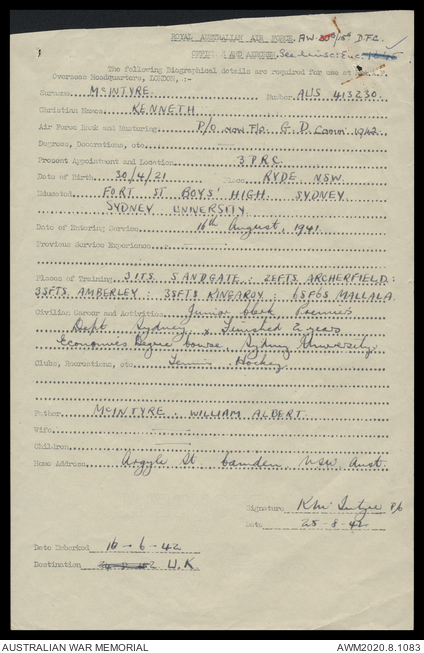 ROYAL AUSTRALIAN AIR FORCE. A.W. 15th D.F.C.
OFFICERS AND AIRCREW. See Misc: Enc:
The following Biographical details are required for use at R.A.A.F.
Overseas Headquarters, LONDON.:-
Surname McINTYRE Number AUS 413230
Christian Names KENNETH
Air Force Rank and Mustering P/O now F/O G.D. 1942
Degrees, Decorations, etc
Present Appointment and Location 3 P.R.C.
Date of Birth 30/4/21 Place RYDE NSW.
Educated FORT ST BOYS' HIGH SYDNEY
SYDNEY UNIVERSITY
Date of Entering Service 16th August, 1941
Previous Service Experience
Places of Training 3 ITS SANDGATE : 2EFTS ARCHERFIELD :
3SFTS AMBERLEY : 3SFTS KINGAROY : 6SFGS MALLALA
Civilian Career and Activities Junior Clerk Premiers
Dept. Sydney, & finished 2 years
Economics Degree Course, Sydney University.
Clubs, Recreations, etc Tennis Hockey
Father McINTYRE . WILLIAM ALBERT
Wife
Children
Home Address Argyle St. Camden. NSW. Aust.
Signature K McIntyre P/O
Date 25-8-42
Date Debarked 16-6-42
Destination U.K.
AUSTRALIAN WAR MEMORIAL AWM2020.8.1083